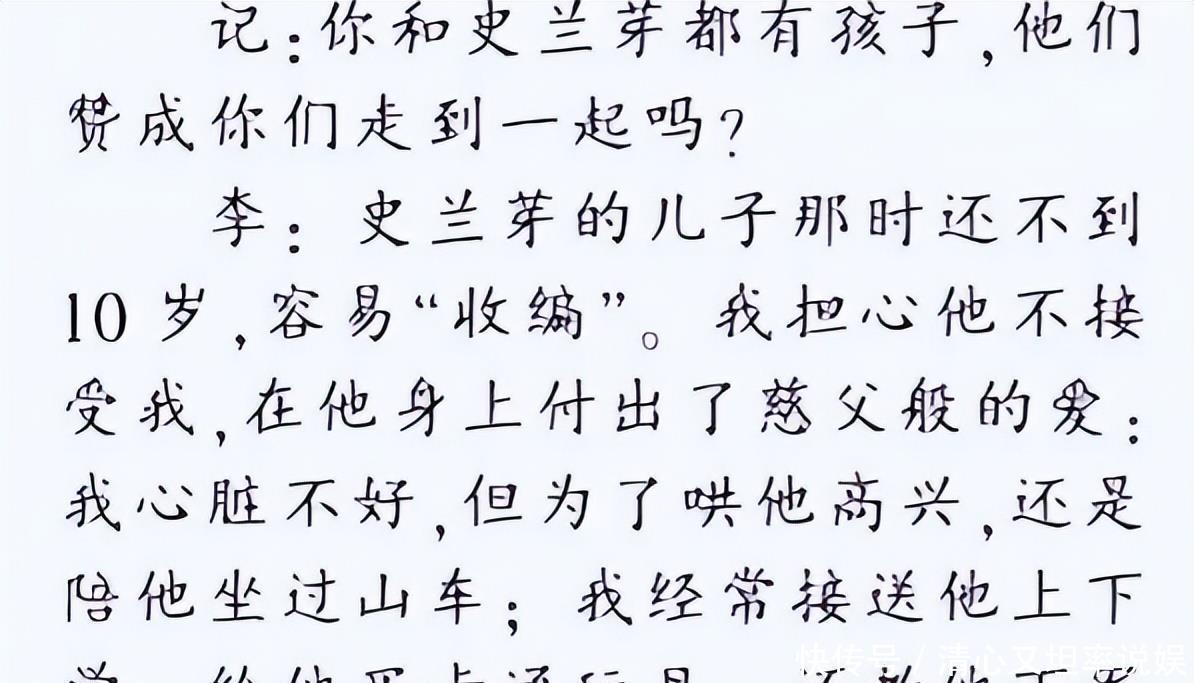 记：你和史兰芽都有孩子，他们
赞成你们走到一起吗？
李：史兰芽的儿子那时还不到
10岁，容易“收编”。我担心他不接
受我，在他身上付出了慈父般的爱：
我心脏不好，但为了哄他高兴，还是
陪他坐过山车；我经常接送他上下
快传号 / 清心又坦率说娱